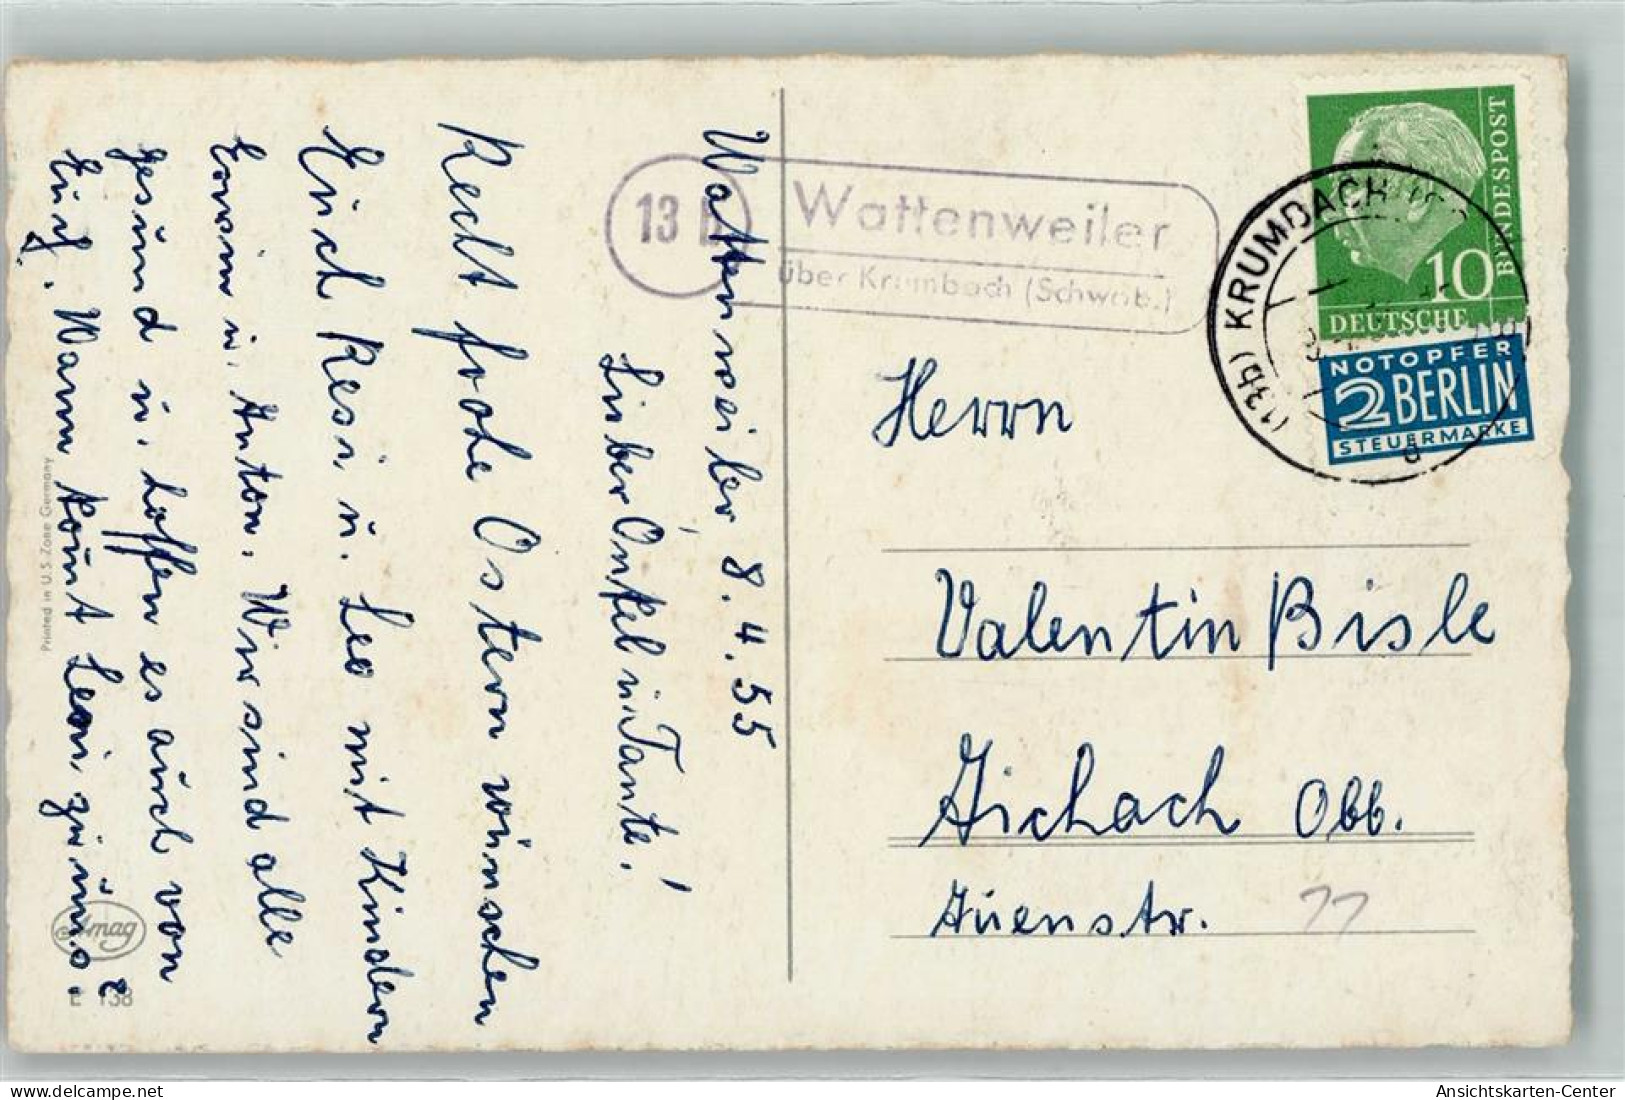 Wattenweiler 8.4.55
Lieber Onkel u. Tante!
Recht frohe Ostern wünschen
Euch Resi u. Leo mit Kindern
Erwin u. Anton. Wir sind alle
gesund u. hoffen es auch von
Euch. Wann kommt zu uns.
Printed in U.S. Zone Germany
Amag
E 138
13 b
Wattenweiler
über Krumbach (Schwab.)
(13b) KRUMBACH
a
DEUTSCHE
BUNDESPOST
10
NOTOPFER
2 BERLIN
STEUERMARKE
Herrn
Valentin Bisle
Aichach Obb.
Auenstr. 11
oldthing.de
Ansichtskarten-Center